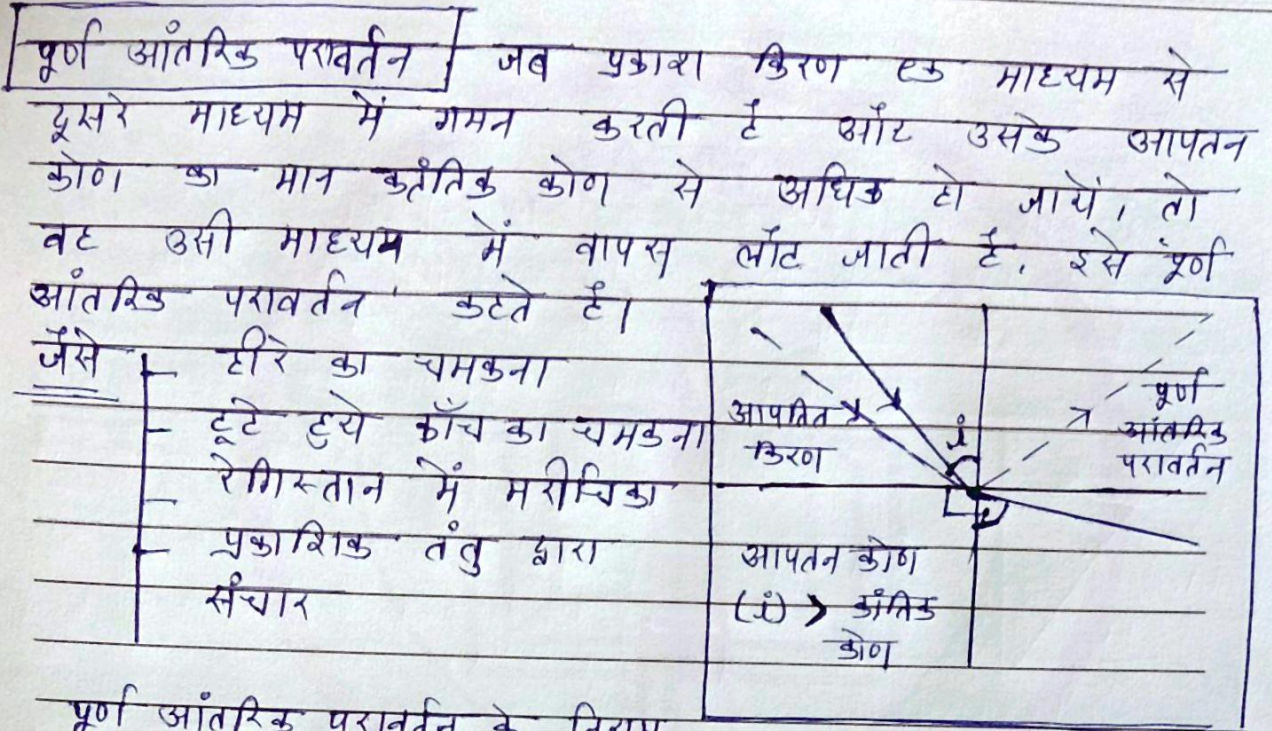 पूर्ण आंतरिक परावर्तन जब प्रकाश किरण एक माध्यम से
दूसरे माध्यम में गमन करती है और उसके आपतन
कोण का मान क्रांतिक कोण से अधिक हो जाये, तो
वह उसी माध्यम में वापस लौट जाती है, इसे पूर्ण
आंतरिक परावर्तन कहते है।
जैसे
हीरे का चमकना
टूटे हुये काँच का चमकना
रेगिस्तान में मरीचिका
प्रकाशिक तंतु द्वारा
संचार
आपतित
किरण
i
r
पूर्ण
आंतरिक
परावर्तन
आपतन कोण
(i) > क्रांतिक
कोण
पूर्ण आंतरिक परावर्तन के नियम